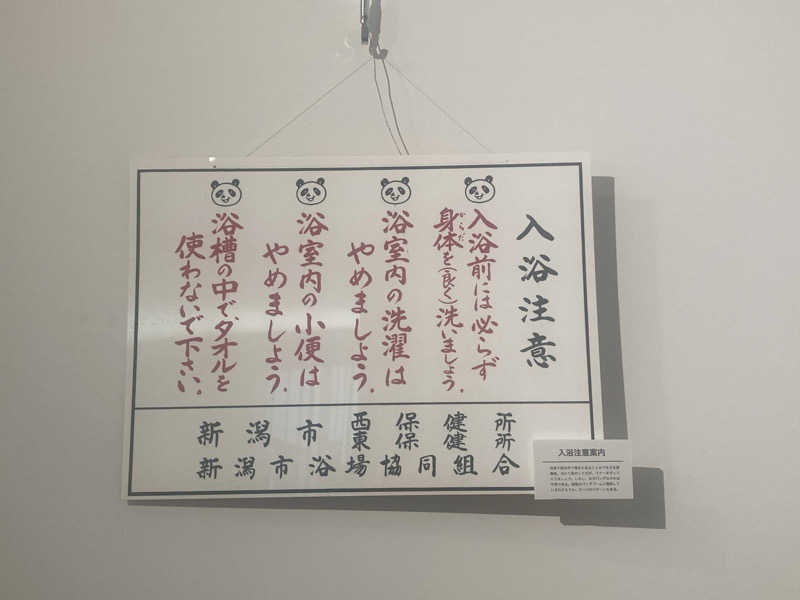 入浴注意
入浴前には必らず
身体を(良く)洗いましょう。
からだ
浴室内の洗濯は
やめましょう。
浴室内の小便は
やめましょう。
浴槽の中で、タオルを
使わないで下さい。
新潟市西保健所
東保健所
新潟市浴場協同組合
入浴注意案内